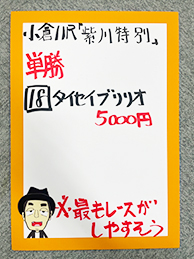 小倉11R『紫川特別』
単勝
18 タイセイブリリオ
5000円
最もレースが
しやすそう